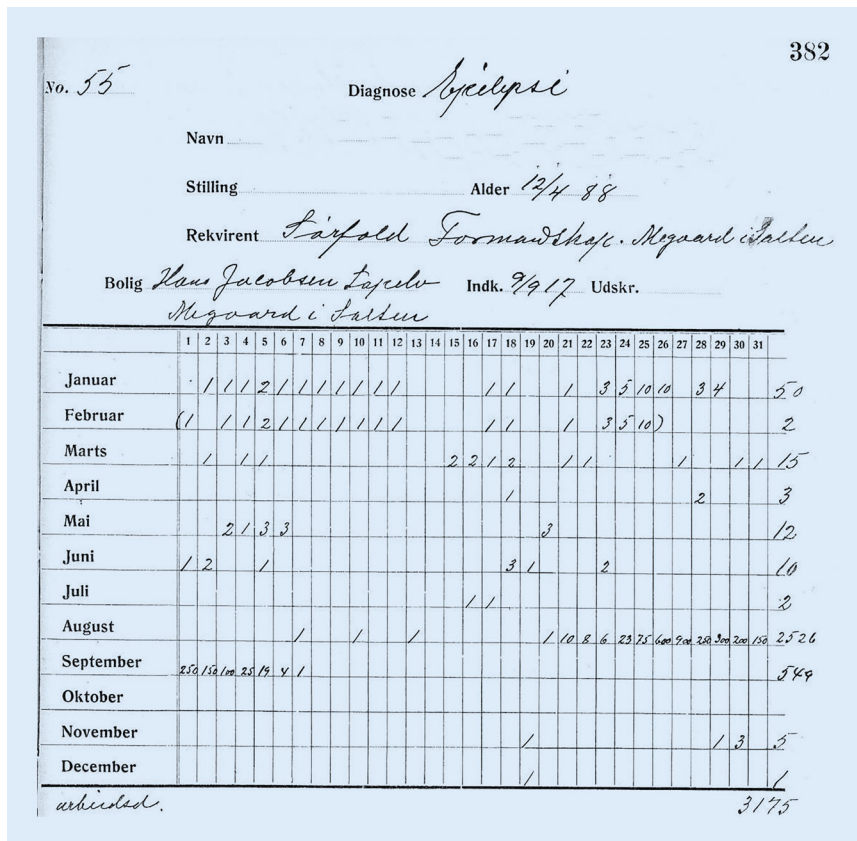 382
No. 55 Diagnose Epilepsi
Navn
Stilling Alder 12/4 88
Rekvirent Sørfold Formandskap. Megaard i Salten
Bolig Hans Jacobsen Indk. 9/9 17 Udskr.
Megaard i Salten
1 2 3 4 5 6 7 8 9 10 11 12 13 14 15 16 17 18 19 20 21 22 23 24 25 26 27 28 29 30 31
Januar 1 1 1 2 1 1 1 1 1 1 1 1 1 1 3 5 10 10 3 4 50
Februar (1 1 1 2 1 1 1 1 1 1 1 1 1 1 3 5 10) 2
Marts 1 1 1 2 2 1 2 1 1 1 1 1 15
April 1 2 3
Mai 2 1 3 3 3 12
Juni 1 2 1 3 1 2 10
Juli 1 1 2
August 1 1 1 1 10 8 6 23 75 600 900 250 300 200 150 2526
September 250 150 100 25 19 4 1 549
Oktober
November 1 1 3 5
December 1 1
3175